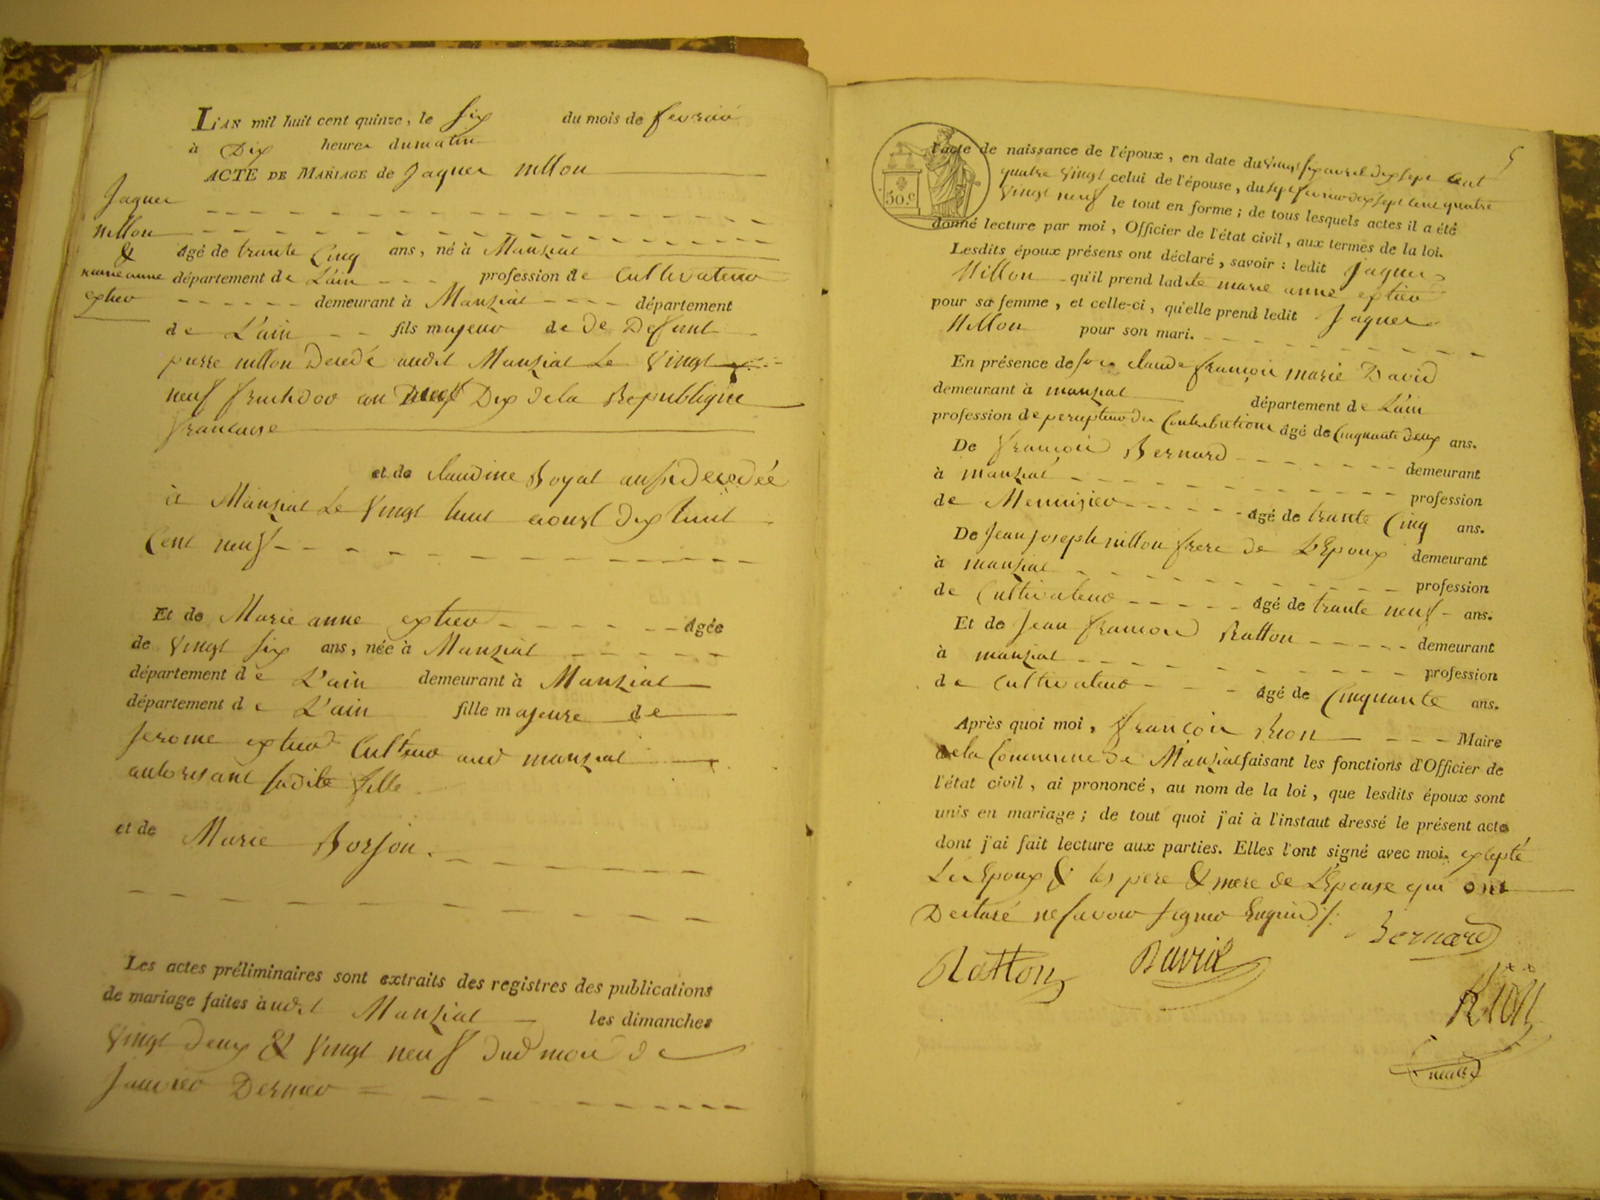 L'AN mil huit cent quinze, le six du mois de fevrier
à Dix heures du matin
ACTE DE MARIAGE de Jaques nillon
Jaques
nillon
&
marie anne
extier
âgé de trante Cinq ans, né à Manziat
département de L'ain profession de Cultivateur
demeurant à Manziat département
de L'ain fils majeur de de Deffunt
pierre nillon Decedé audit Manziat Le Vingt
neuf fructidor an Dix de la Republique
francaise
et de claudine Boyat aussi decedée
à Manziat Le Vingt huit aoust dix huit
Cent neuf
Et de Marie anne extier âgée
de Vingt six ans, née à Manziat
département de L'ain demeurant à Manziat
département de L'ain fille majeure de
Jerome extier Cultivateur aud manziat
autorisant sadite fille
et de Marie Borjon.
Les actes préliminaires sont extraits des registres des publications
de mariage faites à audit Manziat les dimanches
Vingt deux & Vingt neuf dud mois de
Janvier Dernier
5
50.c
l'acte de naissance de l'époux, en date du Vingt six avril dix sept Cent
quatre Vingt celui de l'épouse, du sept fevrier dix sept Cent quatre
Vingt neuf le tout en forme; de tous lesquels actes il a été
donné lecture par moi, Officier de l'état civil, aux termes de la loi.
Lesdits époux présens ont déclaré, savoir: ledit Jaques
Nillon qu'il prend ladite marie anne extier
pour sa femme, et celle-ci, qu'elle prend ledit Jaques
Nillon pour son mari.
En présence de claude françois marie David
demeurant à manziat département de L'ain
profession de percepteur des Contributions âgé de Cinquante deux ans.
De françois Bernard demeurant
à manziat profession
de Menuisier âgé de trante Cinq ans.
De Jean Joseph nillon frere de L'Epoux demeurant
à manziat profession
de Cultivateur âgé de trante neuf ans.
Et de Jean françois Ratton demeurant
à manziat profession
de Cultivateur âgé de Cinquante ans.
Après quoi moi, françois Rion Maire
de la Commune de Manziat faisant les fonctions d'Officier de
l'état civil, ai prononcé, au nom de la loi, que lesdits époux sont
unis en mariage; de tout quoi j'ai à l'instant dressé le présent acte
dont j'ai fait lecture aux parties. Elles l'ont signé avec moi. exlepté
Les Epoux & les pere & mere de L'Epouse qui ont
Declaré ne savoir signer Enquis
Bernard
Ratton David
Rion
maire